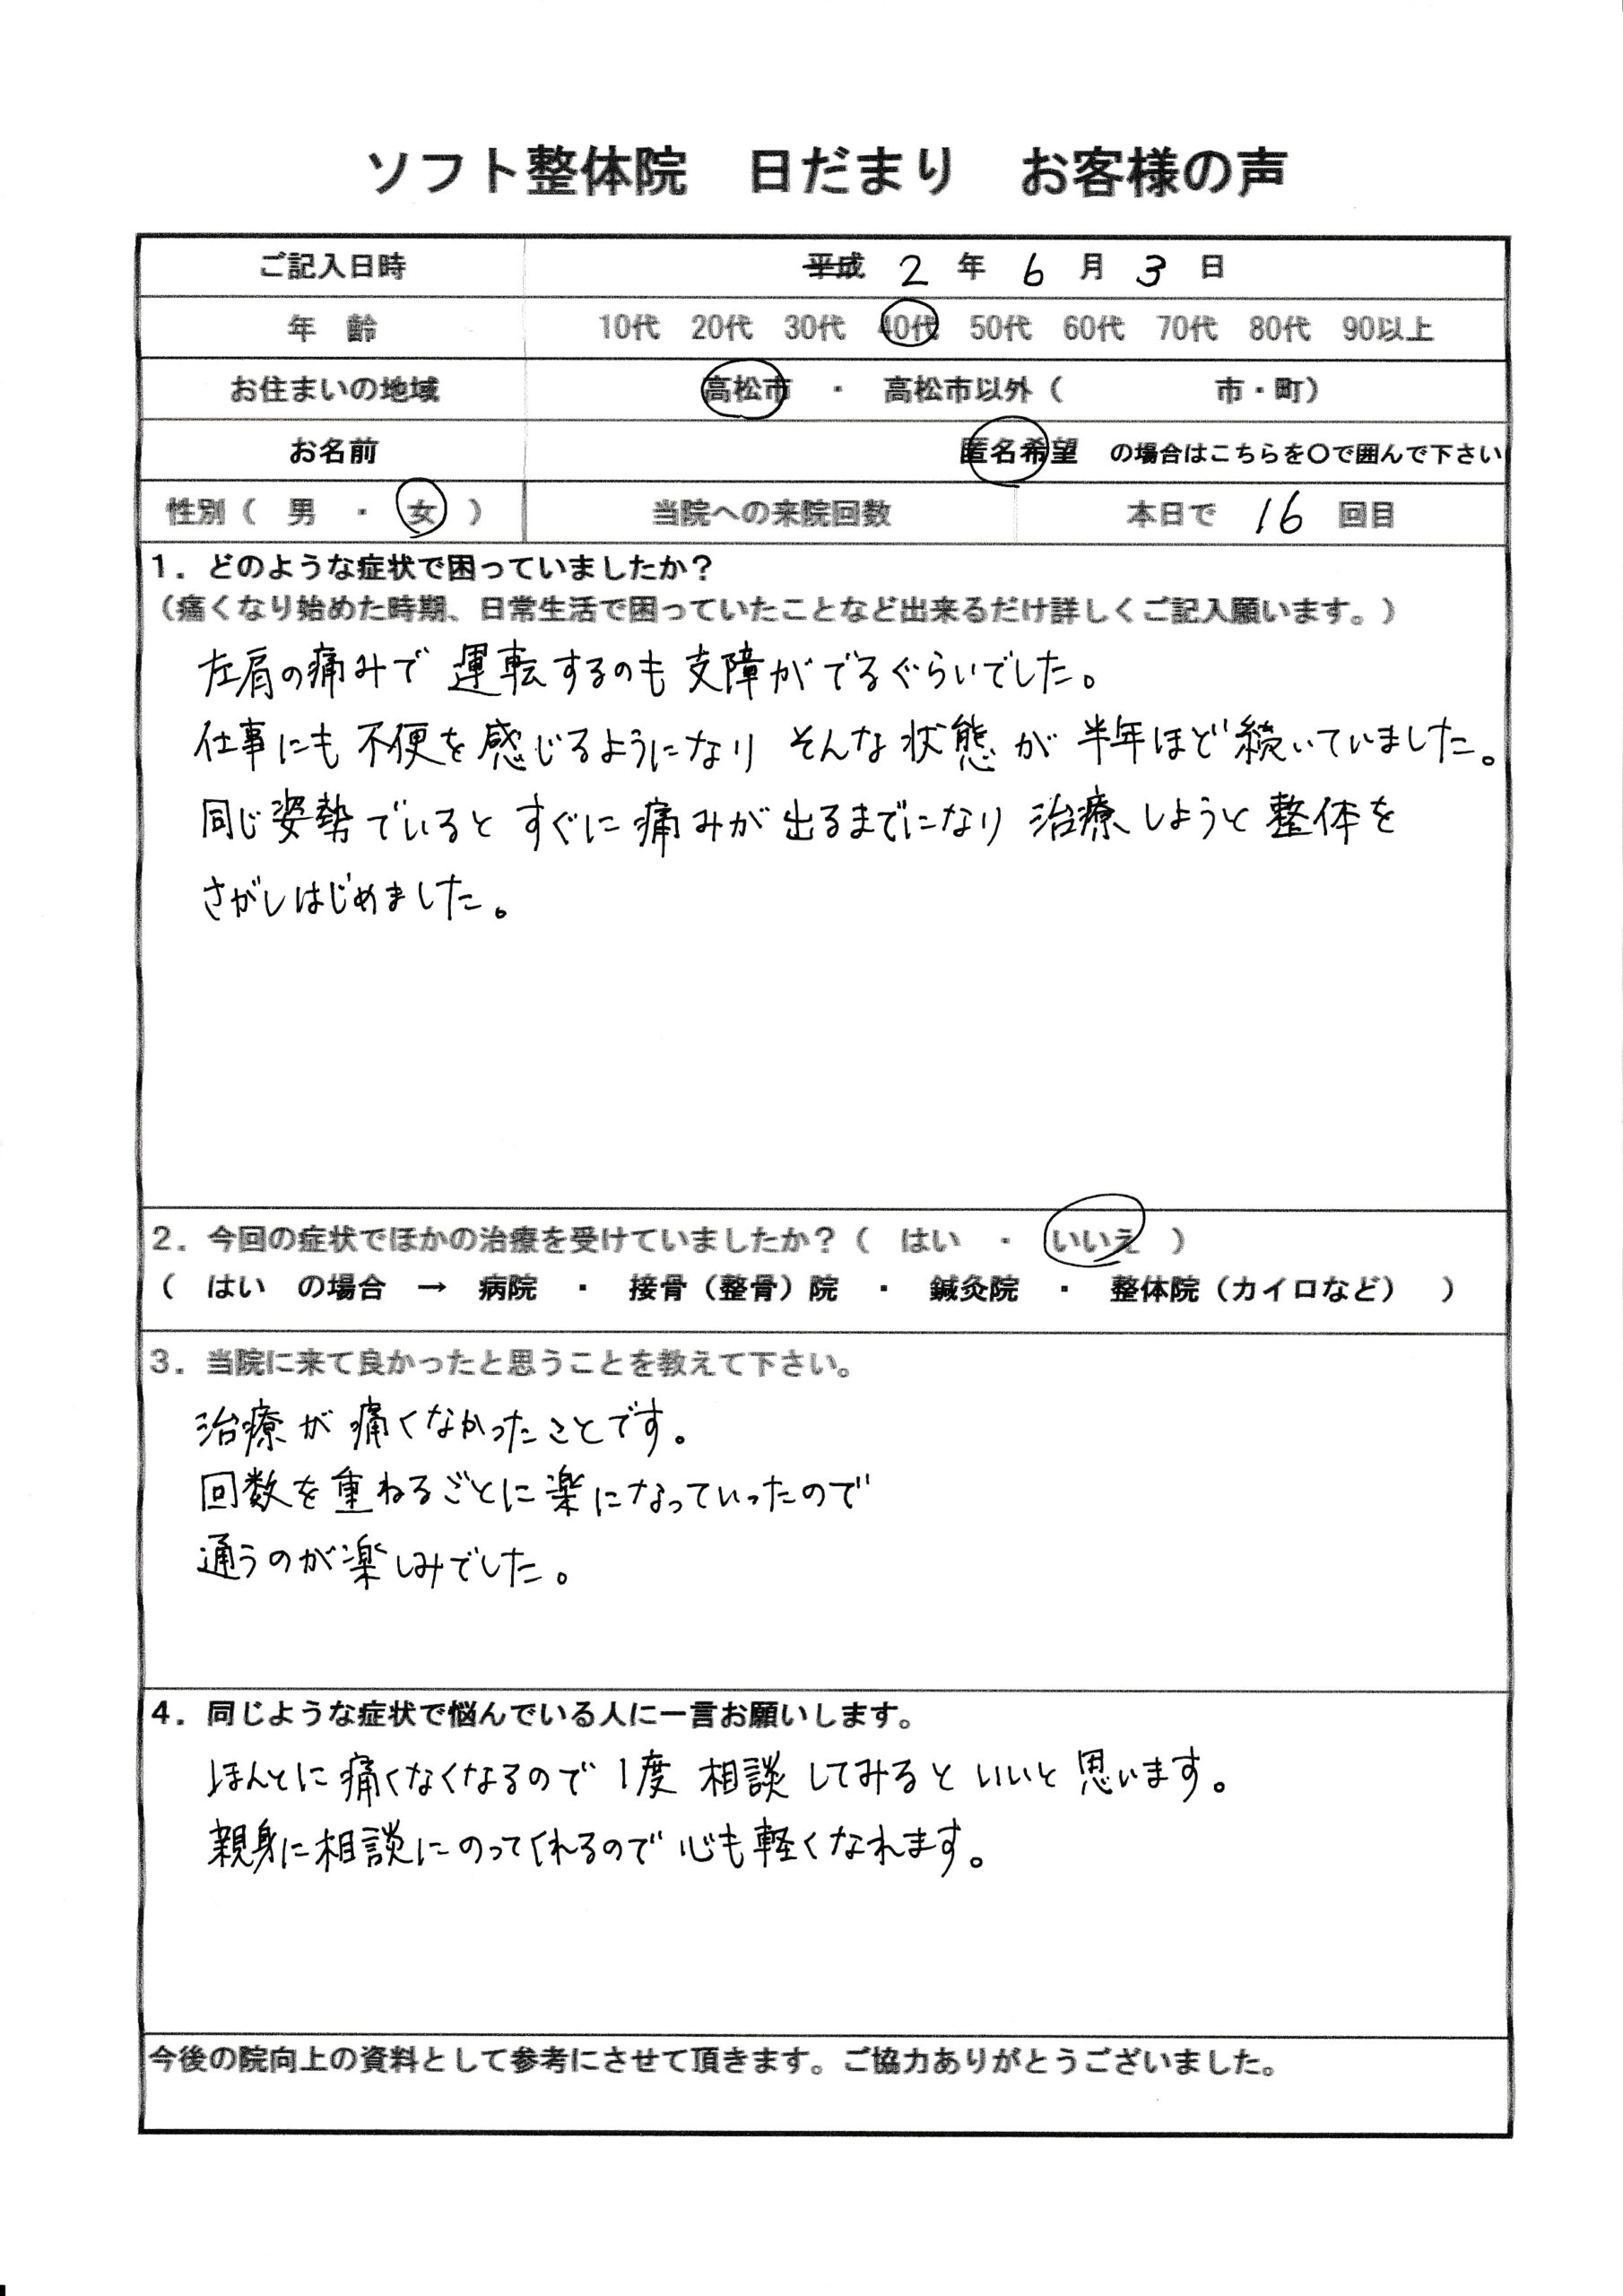 ソフト整体院 日だまり お客様の声
ご記入日時 平成 2 年 6 月 3 日
年 齢 10代 20代 30代 40代 50代 60代 70代 80代 90以上
お住まいの地域 高松市 ・ 高松市以外（ 市・町）
お名前 匿名希望 の場合はこちらを〇で囲んで下さい
性別（ 男 ・ 女 ） 当院への来院回数 本日で 16 回目
1．どのような症状で困っていましたか？
（痛くなり始めた時期、日常生活で困っていたことなど出来るだけ詳しくご記入願います。）
左肩の痛みで 運転するのも 支障がでるぐらいでした。
仕事にも 不便を 感じるようになり そんな 状態 が 半年ほど 続いていました。
同じ姿勢でいると すぐに 痛みが 出るまでになり 治療しようと 整体を
さがしはじめました。
2．今回の症状でほかの治療を受けていましたか？（ はい ・ いいえ ）
（ はい の場合 → 病院 ・ 接骨（整骨）院 ・ 鍼灸院 ・ 整体院（カイロなど） ）
3．当院に来て良かったと思うことを教えて下さい。
治療が 痛くなかったことです。
回数を重ねるごとに楽になっていったので
通うのが楽しみでした。
4．同じような症状で悩んでいる人に一言お願いします。
ほんとに 痛くなくなるので 1度 相談 してみると いいと 思います。
親身に相談にのってくれるので 心も軽くなれます。
今後の院向上の資料として参考にさせて頂きます。ご協力ありがとうございました。